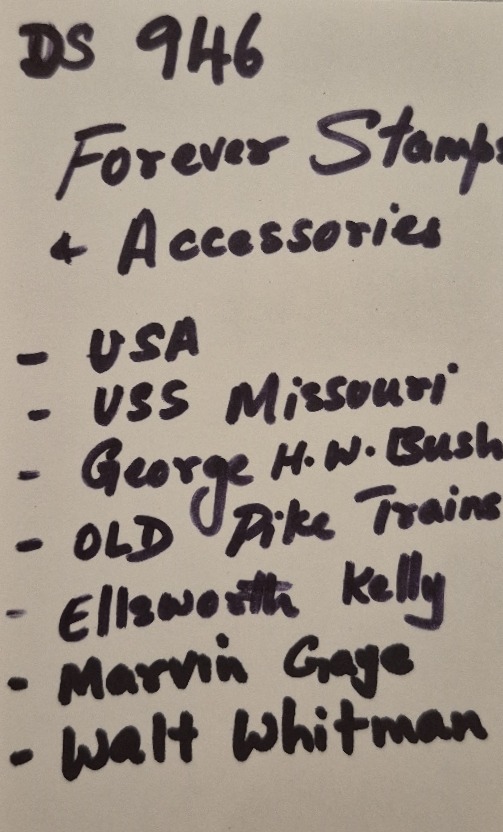 DS 946
Forever Stamps
& Accessories
- USA
- USS Missouri
- George H.W. Bush
- OLD Pike Trains
- Ellsworth Kelly
- Marvin Gaye
- Walt Whitman